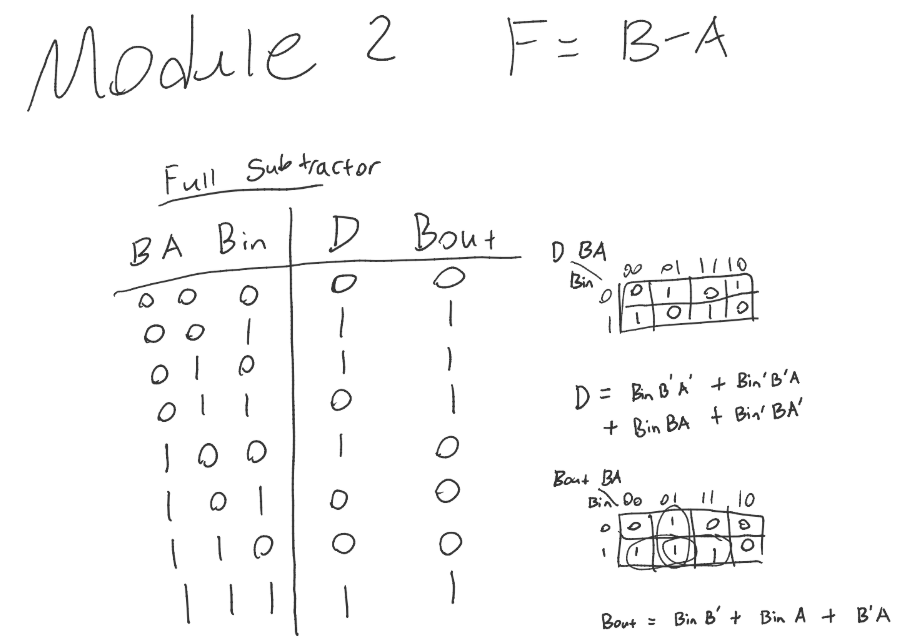 Module 2 F = B-A
Full Subtractor
BA Bin D Bout
0 0 0 0 0
0 0 1 1 1
0 1 0 1 1
0 1 1 0 1
1 0 0 1 0
1 0 1 0 0
1 1 0 0 0
1 1 1 1 1
D BA
Bin 00 01 11 10
0 0 1 0 1
1 1 0 1 0
D = Bin B'A' + Bin'B'A
+ Bin BA + Bin'BA'
Bout BA
Bin 00 01 11 10
0 0 1 0 0
1 1 1 1 0
Bout = Bin B' + Bin A + B'A